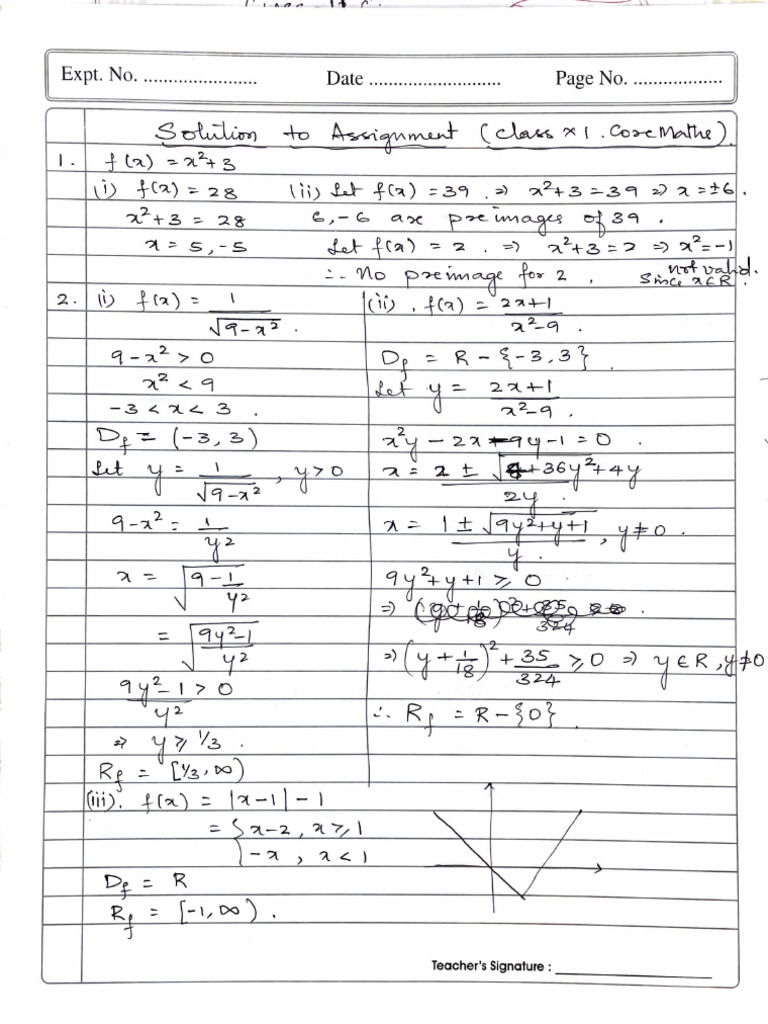 Expt. No. ...................... Date .......................... Page No. ..................
Solution to Assignment (class XI. Core Maths).
1. f(x) = x²+3
(i) f(x) = 28 (ii) Let f(x) = 39 . ⇒ x²+3 = 39 ⇒ x = ±6 .
x²+3 = 28 6, -6 are preimages of 39 .
x = 5, -5 Let f(x) = 2 . ⇒ x²+3 = 2 ⇒ x² = -1
∴ No preimage for 2 . not valid. Since x∈R .
2. (i) f(x) = 1/√(9-x²) .
9-x² > 0
x² < 9
-3 < x < 3 .
D_f = (-3, 3)
Let y = 1/√(9-x²) , y>0
9-x² = 1/y²
x = √(9 - 1/y²)
= √((9y²-1)/y²)
(9y²-1)/y² > 0
⇒ y ⩾ 1/3 .
R_f = [1/3, ∞)
(ii) . f(x) = (2x+1)/(x²-9) .
D_f = R - {-3, 3} .
Let y = (2x+1)/(x²-9) .
x²y - 2x - 9y - 1 = 0 .
x = (2 ± √(4+36y²+4y))/2y .
x = (1 ± √(9y²+y+1))/y . , y≠0 .
9y²+y+1 ⩾ 0
⇒ (y + 1/18)² + 35/324 ⩾ 0 ⇒ y∈R , y≠0
∴ R_f = R - {0} .
(iii). f(x) = |x-1| - 1
= { x-2, x ⩾ 1
-x , x < 1
D_f = R
R_f = [-1, ∞) .
Teacher's Signature : ____________________